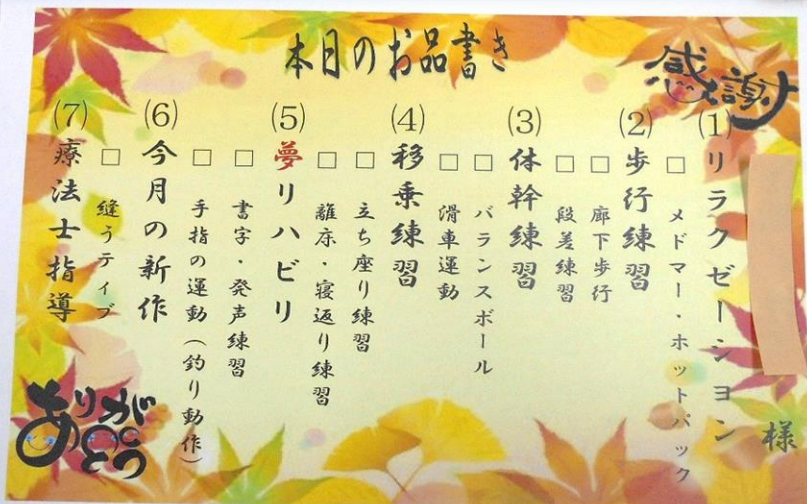 本月のお品書き
感謝
様
(1)リラクゼーション
□メドマー・ホットパック
(2)歩行練習
□廊下歩行
□段差練習
(3)体幹練習
□バランスボール
□滑車運動
(4)移乗練習
□立ち座り練習
□離床・寝返り練習
(5)夢リハビリ
□書字・発声練習
□手指の運動(釣り動作)
(6)今月の新作
□縫うティブ
(7)療法士指導
ありがとう